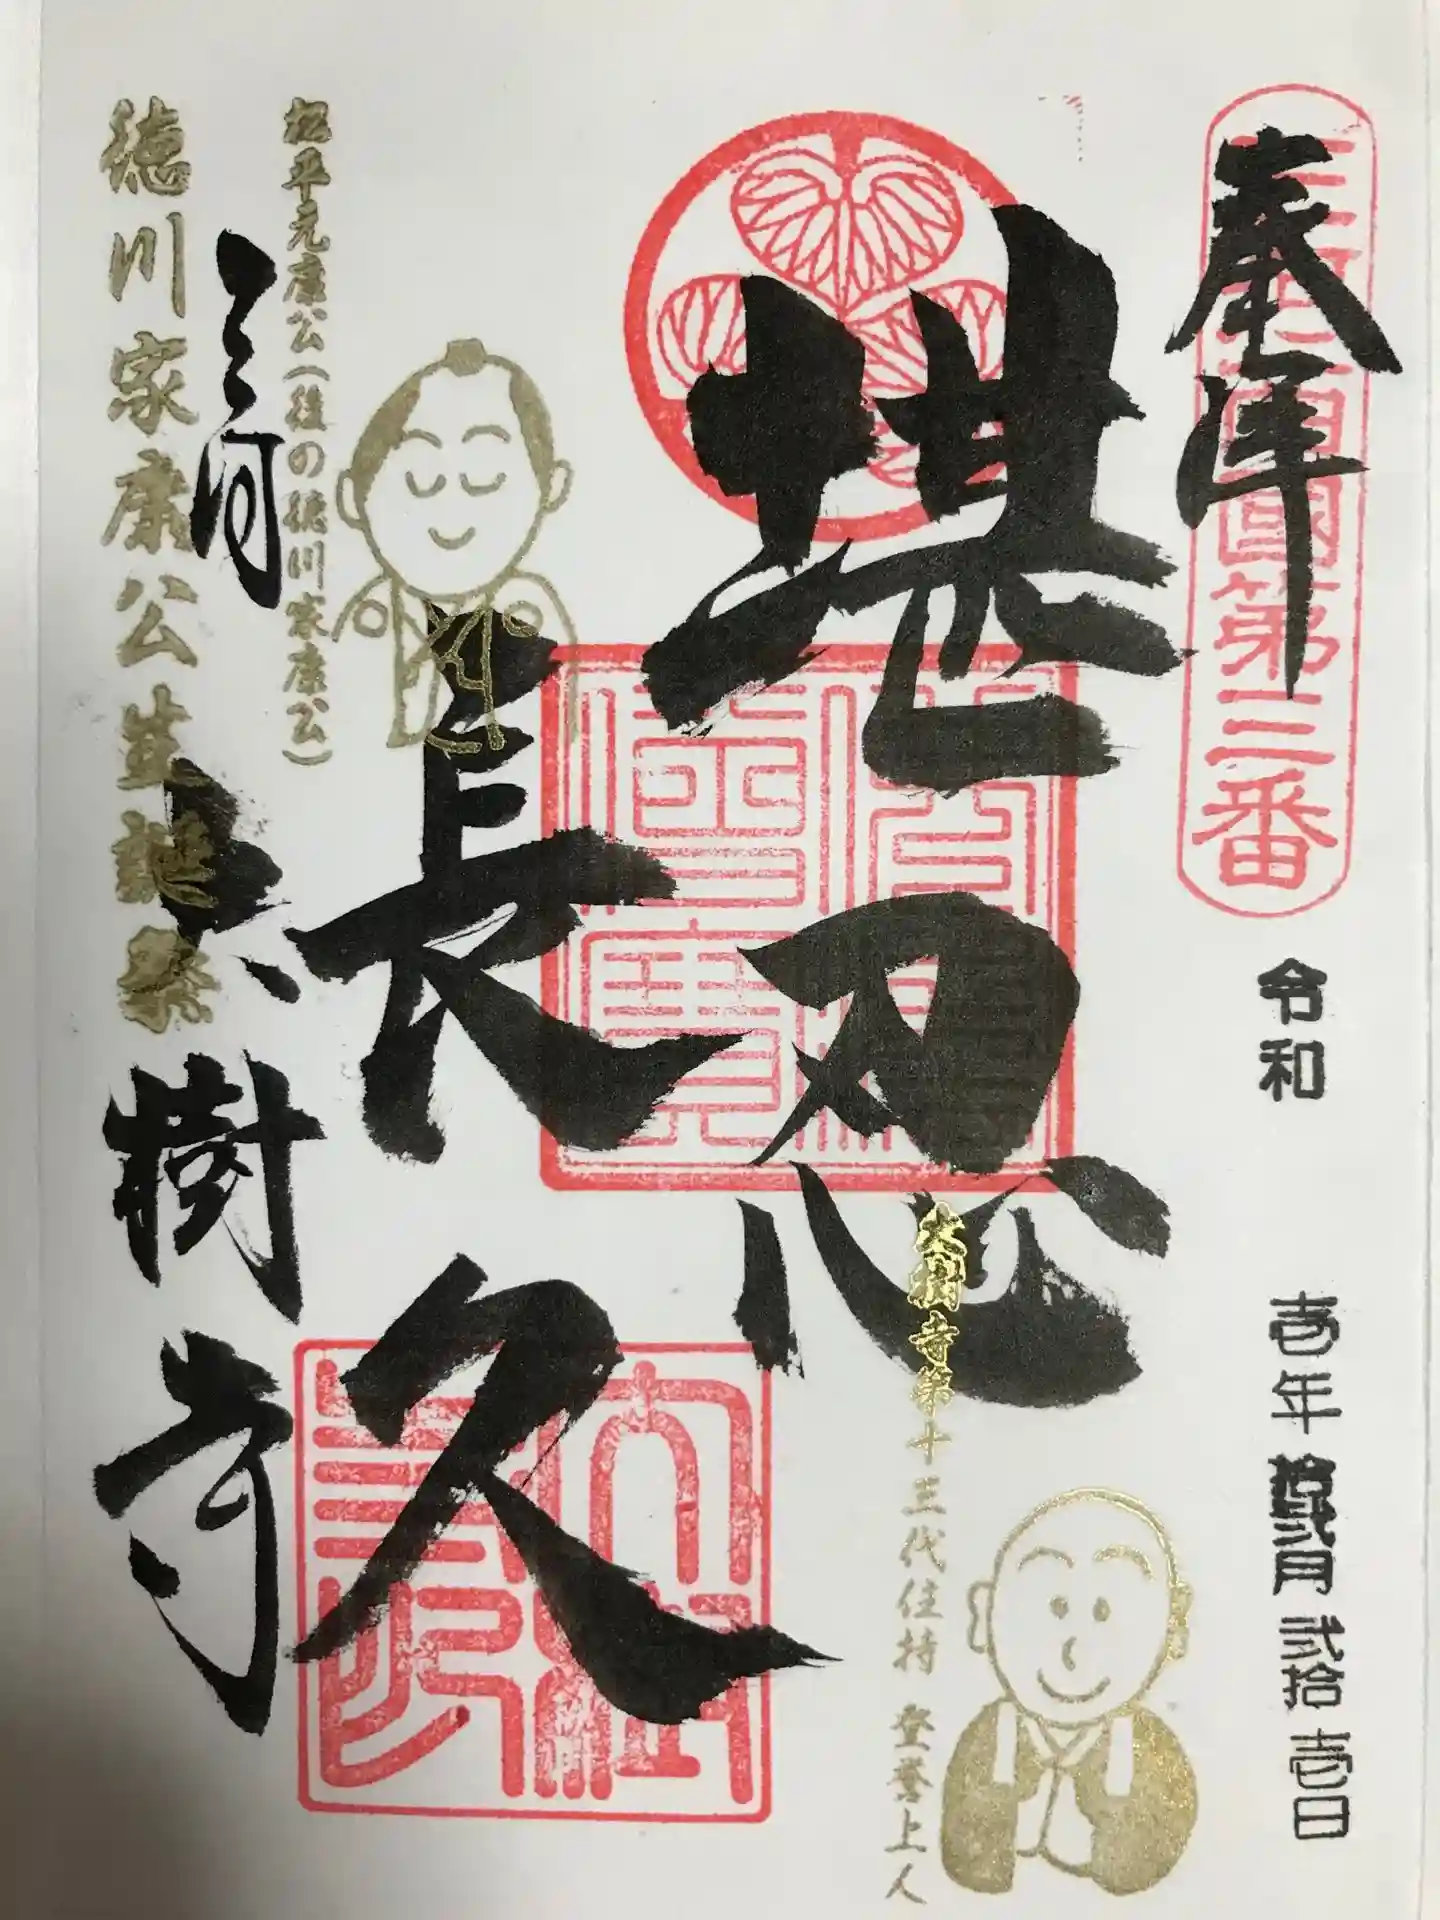 奉拝
三河西国第三番
令和 壱年 拾弐月 弐拾壱日
堪忍
大樹寺第十三代住持 登誉上人
長久
松平元康公(後の徳川家康公)
三河 大樹寺
徳川家康公生誕祭